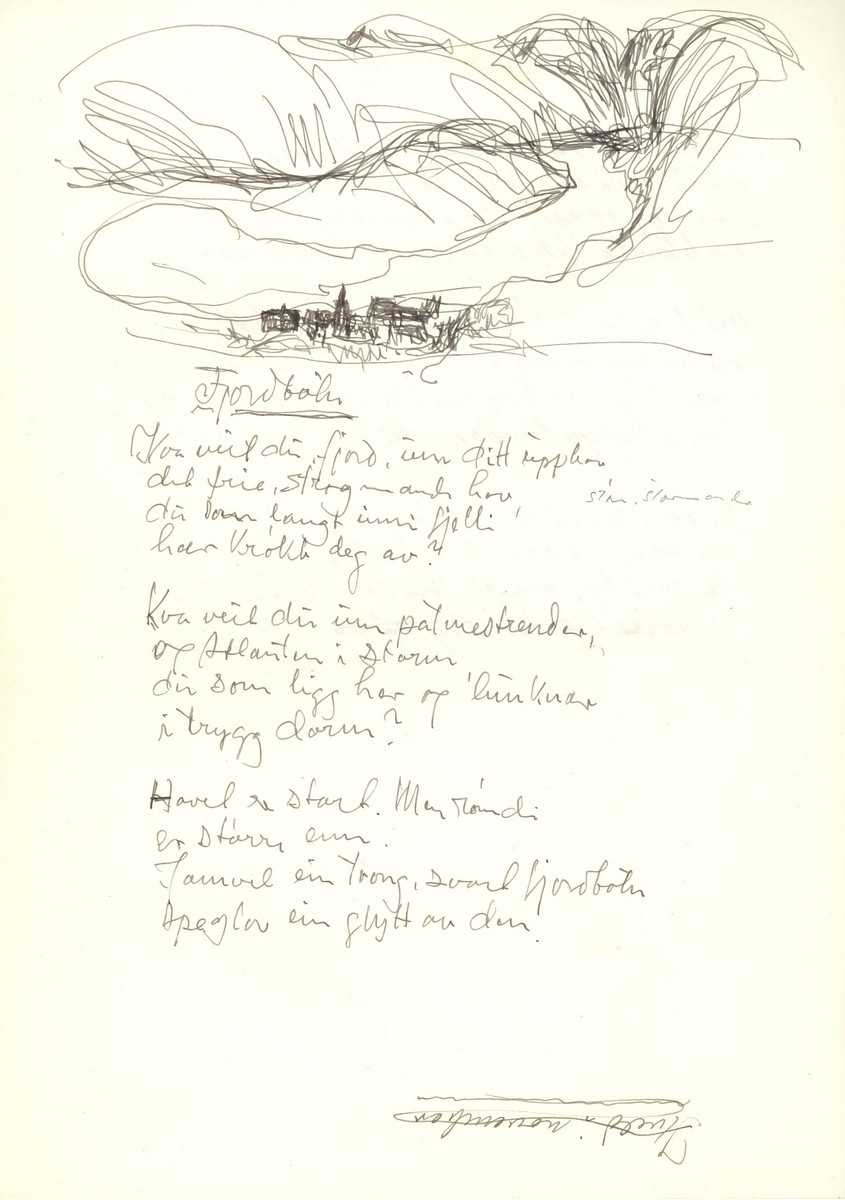 Fjordbotn
Kva veit du, fjord, um ditt upphav
det frie, strøymande hav,
du som langt inni fjelli
har krøkt deg av?
Kva veit du um palmestrender,
og Atlanten i storm
du som ligg her og lunknar
i trygg dorm?
Havet er stort. Men rømdi
er større enn.
Jamvel ein trong, svart fjordbotn
speglar ein glytt av den.
Kveld i november